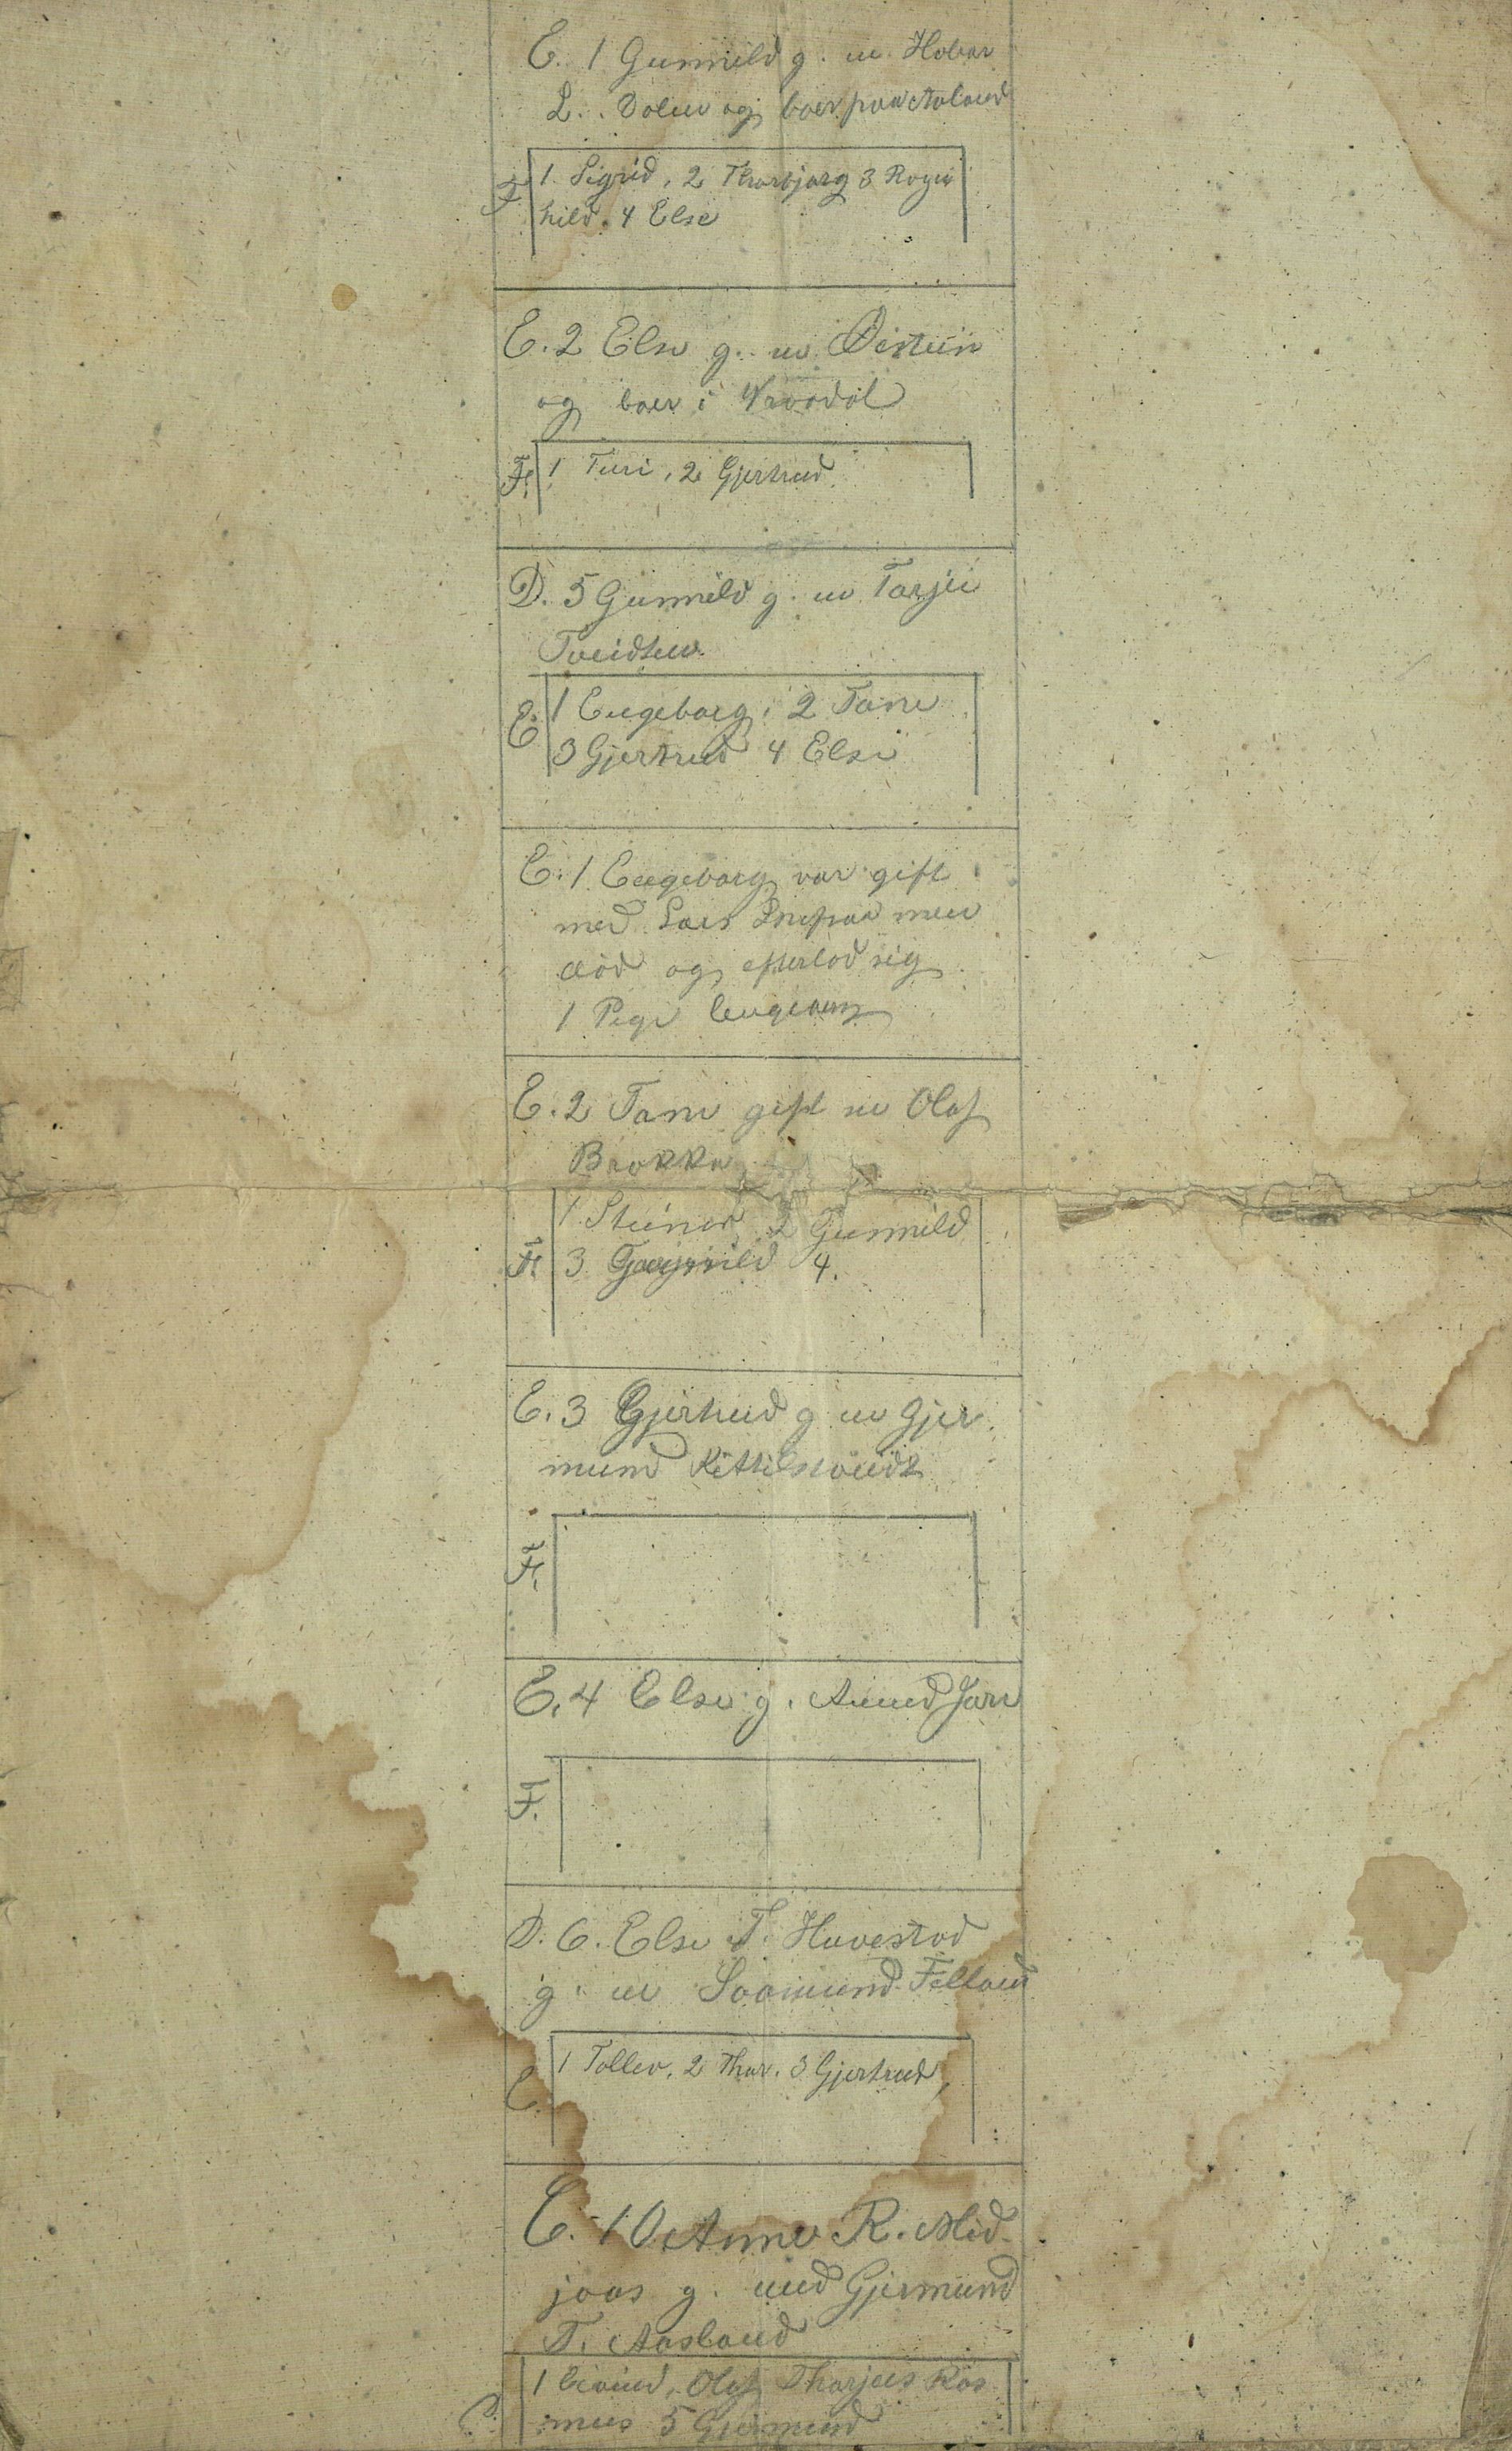 E. 1 Gunnild g. m. Hovar
L. Dolen og boer paa Aaland
F. 1. Sigrid, 2 Thorbjørg 3 Ragn
hild. 4 Else
E. 2 Else g. m. Øistein
og boer i Vraadal
F. 1 Turi, 2 Gjertrud
D. 5 Gunnild g. m Tarjei
Tveidten
E. 1 Engeborg, 2 Tone
3 Gjertrud 4 Else
E. 1 Engeborg var gift
med Lars men
død og efterlod sig
1 Pige
E. 2 Tone gift m Olaf
Brokke
F. 1 Steinar 2 Gunnild
3 4.
E. 3 Gjertrud g m Gjer
mund
F.
E. 4 Else g. Aamund
F.
D. 6. Else T. Huvestad
g. m Saamund Felland
E. 1 Tollev, 2 Thor. 3 Gjertrud,
C. 10 Anne R. Mid
jaas g. med Gjermund
T. Aasland
1 Eivind, Olaf Tharjeis Ras
mus 5 Gjermund